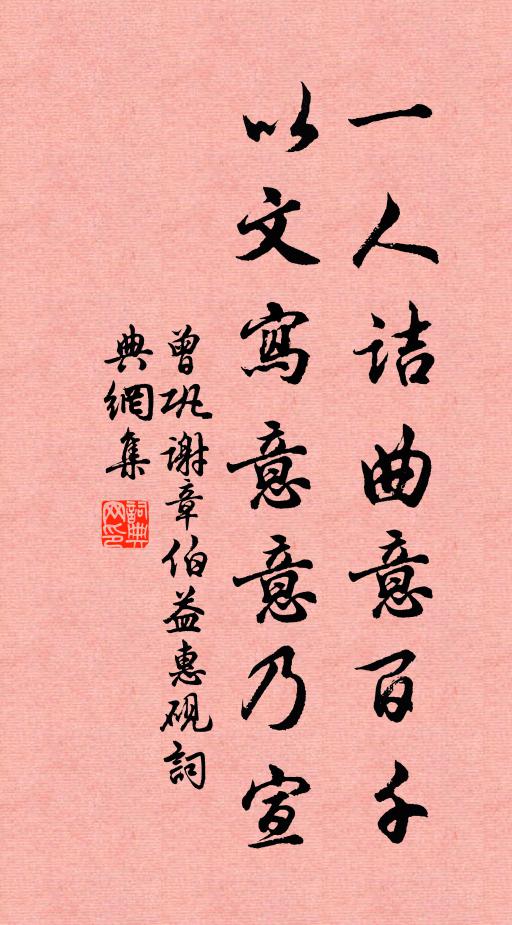 一人诘曲意百千
以文寫意意乃宣
曾巩谢章伯益惠砚詞
典網集
詞典網印